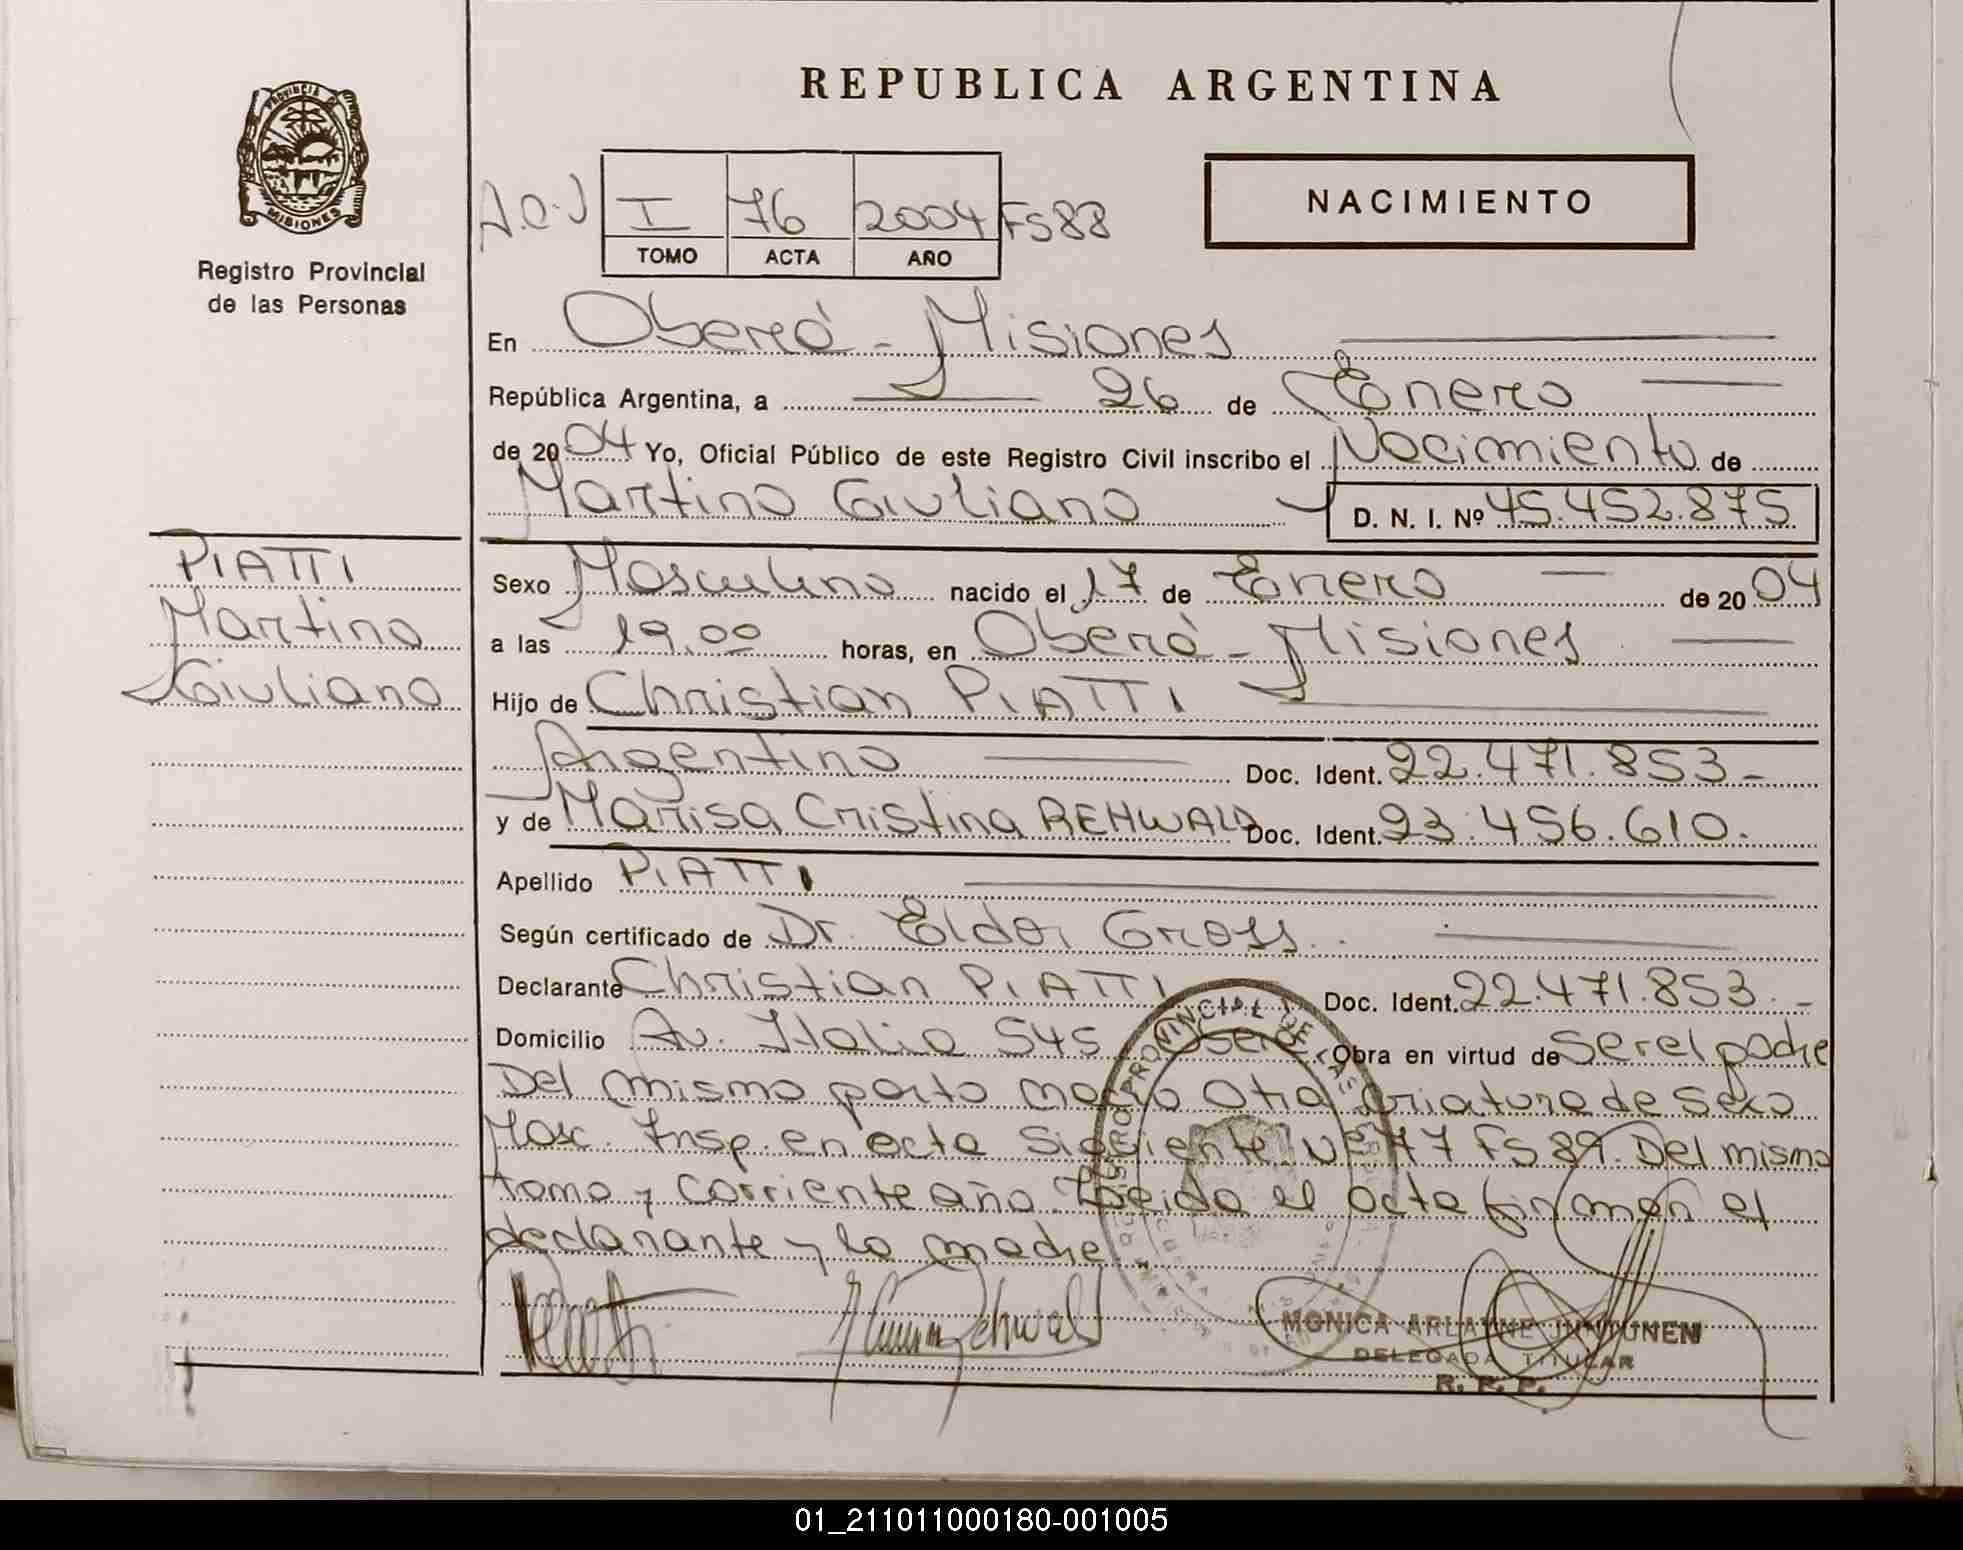 REPUBLICA ARGENTINA
PROVINCIA DE
MISIONES
Registro Provincial
de las Personas
A.C.J I 76 2004 FS88
TOMO ACTA AÑO
NACIMIENTO
En Oberá - Misiones
República Argentina, a 26 de Enero
de 2004 Yo, Oficial Público de este Registro Civil inscribo el Nacimiento de
Martino Giuliano D. N. I. Nº 45.452.875
PIATTI
Martino
Giuliano
Sexo Masculino nacido el 17 de Enero de 2004
a las 19.00 horas, en Oberá - Misiones
Hijo de Christian PIATTI
Argentino Doc. Ident. 22.471.853-
y de Marisa Cristina REHWALD Doc. Ident. 23.456.610.
Apellido PIATTI
Según certificado de Dr. Eldor Gross
Declarante Christian PIATTI Doc. Ident. 22.471.853.-
Domicilio Av. Italia 545 Obra en virtud de ser el padre
Del mismo parto nació otra criatura de sexo
Masc. Insp. en acta siguiente Nº 77 FS 89. Del mismo
tomo y corriente año. Leida el acta firman el
declarante y la madre.
MONICA ARLANNE JUNTUNEN
DELEGADA TITULAR
R. P. P.
01_211011000180-001005